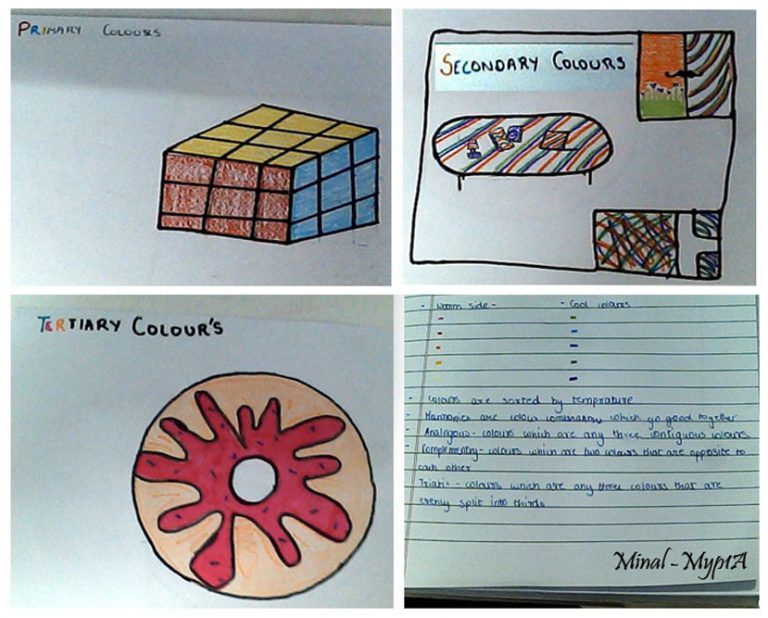 PRIMARY COLOURS
SECONDARY COLOURS
TERTIARY COLOUR'S
- Warm side - - Cool colours
- Colours are sorted by temprature
- Harmonies are colour combinations which go good together
- Analogous - colours which are any three contiguous colours
- Complimentry - colours which are two colours that are opposite to
each other
Triatic - colours which are any three colours that are
evenly split into thirds
Minal - Myp1A